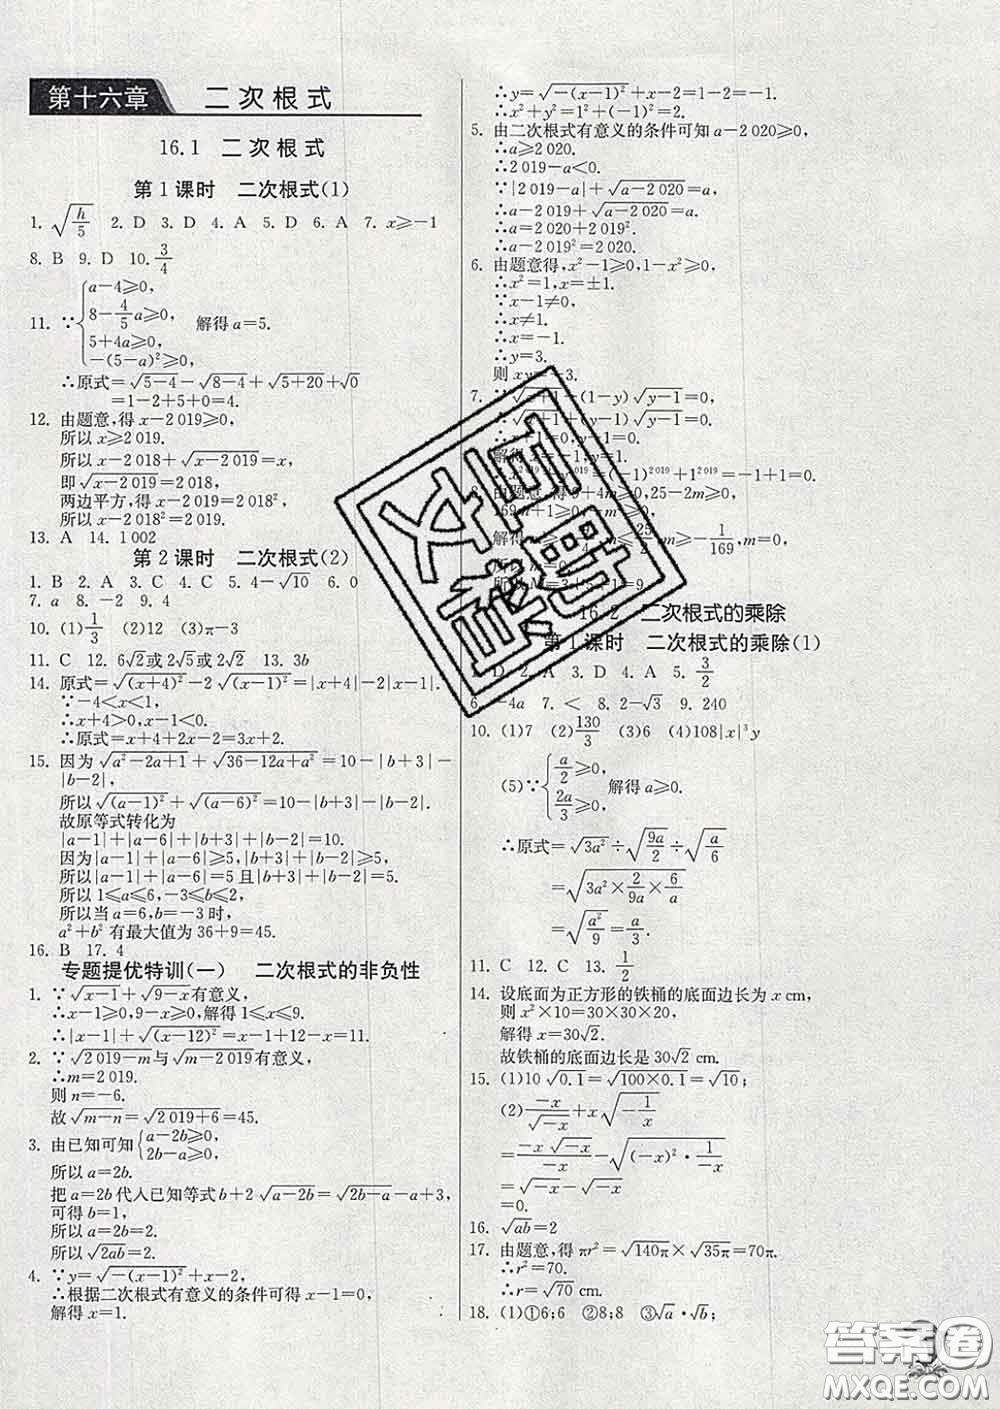 第十六章 二次根式
16.1 二次根式
第1课时 二次根式(1)
1. √(h/5) 2. D 3. D 4. A 5. D 6. A 7. x≥-1
8. B 9. D 10. 3/4
11. ∵{a-4≥0, 8-4/5a≥0, 5+4a≥0, -(5-a)²≥0, 解得a=5.
∴原式=√(5-4)-√(8-4)+√(5+20)+√0
=1-2+5+0=4.
12. 由题意,得x-2 019≥0,
所以x≥2 019.
所以x-2 018+√(x-2 019)=x,
即√(x-2 019)=2 018,
两边平方,得x-2 019=2 018²,
所以x-2 018²=2 019.
13. A 14. 1 002
第2课时 二次根式(2)
1. B 2. A 3. C 4. C 5. 4-√10 6. 0
7. a 8. -2 9. 4
10. (1)1/3 (2)12 (3)π-3
11. C 12. 6√2或2√5或2√2 13. 3b
14. 原式=√(x+4)²-2√(x-1)²=|x+4|-2|x-1|.
∵-4<x<1,
∴x+4>0,x-1<0.
∴原式=x+4+2x-2=3x+2.
15. 因为√(a²-2a+1)+√(36-12a+a²)=10-|b+3|-
|b-2|,
所以√(a-1)²+√(a-6)²=10-|b+3|-|b-2|.
故原等式转化为
|a-1|+|a-6|+|b+3|+|b-2|=10.
因为|a-1|+|a-6|≥5,|b+3|+|b-2|≥5,
所以|a-1|+|a-6|=5且|b+3|+|b-2|=5.
所以1≤a≤6,-3≤b≤2.
所以当a=6,b=-3时,
a²+b²有最大值为36+9=45.
16. B 17. 4
专题提优特训(一) 二次根式的非负性
1. ∵√(x-1)+√(9-x)有意义,
∴x-1≥0,9-x≥0,解得1≤x≤9.
∴|x-1|+√(x-12)²=x-1+12-x=11.
2. ∵√(2 019-m)与√(m-2 019)有意义,
∴m=2 019.
则n=-6.
故√(m-n)=√(2 019+6)=45.
3. 由已知可知{a-2b≥0, 2b-a≥0,
所以a=2b.
把a=2b代入已知等式b+2√(a-2b)=√(2b-a)-a+3,
可得b=1,
所以a=2b=2.
所以√(2ab)=2.
4. ∵y=√(-(x-1)²)+x-2,
∴根据二次根式有意义的条件可得x-1=0,
解得x=1.
∴y=√(-(x-1)²)+x-2=1-2=-1.
∴x²+y²=1²+(-1)²=2.
5. 由二次根式有意义的条件可知a-2 020≥0,
∴a≥2 020.
∴2 019-a<0.
∵|2 019-a|+√(a-2 020)=a,
∴a-2 019+√(a-2 020)=a.
∴a=2 020+2 019².
∴a-2 019²=2 020.
6. 由题意得,x²-1≥0,1-x²≥0,
∴x²=1,x=±1.
∵x-1≠0,
∴x≠1.
∴x=-1.
∴y=3.
则xy=-3.
7. ∵√(x+1)-(1-y)√(y-1)=0,
∴√(x+1)+(y-1)√(y-1)=0.
∴x+1=0,y-1=0.
解得x=-1,y=1.
=(-1)^2 019+1^2 019=-1+1=0.
8. 由题意,得9+4m≥0,25-2m≥0,
169m+1≥0,
m≥-1/169,m=0,
16.2 二次根式的乘除
第1课时 二次根式的乘除(1)
1. D 2. A 3. D 4. A 5. 3/2
6. -4a 7. < 8. 2-√3 9. 240
10. (1)7 (2)130/3 (3)6 (4)108|x|³y
(5)∵{a/2≥0, 2a/3≥0, 解得a≥0.
∴原式=√(3a²)÷√(9a/2)÷√(a/6)
=√(3a²×2/(9a)×6/a)
=√(a²/9)=a/3.
11. C 12. C 13. 1/2
14. 设底面为正方形的铁桶的底面边长为x cm,
则x²×10=30×30×20,
解得x=30√2.
故铁桶的底面边长是30√2 cm.
15. (1)10√0.1=√(100×0.1)=√10;
(2)-x/√(-x)+x√(-1/x)
=-x√(-x)/-x-√((-x)²·1/-x)
=√(-x)-√(-x)
=0.
16. √ab=2
17. 由题意,得πr²=√(140π)×√(35π)=70π.
∴r²=70.
∴r=√70 cm.
18. (1)①6;6 ②8;8 ③√a·√b;
答案圈
MXQE.COM